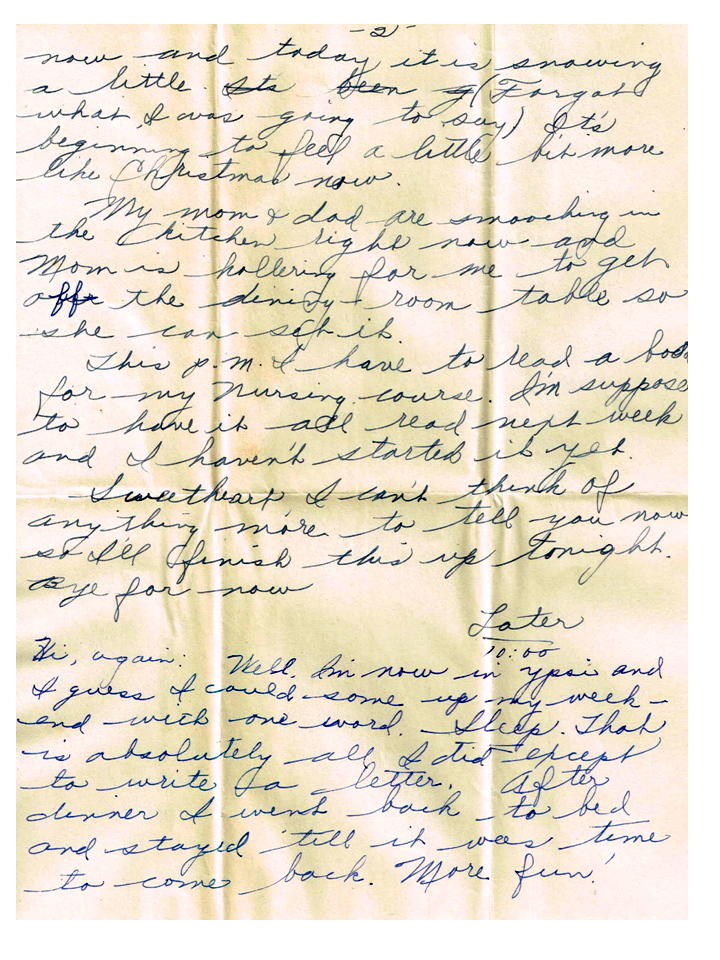 -2-
now and today it is snowing
a little. Its been g (Forgot
what I was going to say) It's
beginning to feel a little bit more
like Christmas now.
My mom & dad are smooching in
the kitchen right now and
Mom is hollering for me to get
off the dining-room table so
she can set it.
This p.m. I have to read a book
for my Nursing course. I'm suppose
to have it all read next week
and I haven't started it yet.
Sweetheart I can't think of
anything more to tell you now
so I'll finish this up tonight.
Bye for now
Later
10:00
Hi, again: Well, Im now in ypsi and
I guess I could some up my week-
end with one word. Sleep. That
is absolutely all I did except
to write a letter. After
dinner I went back to bed
and stayed 'till it was time
to come back. More fun!